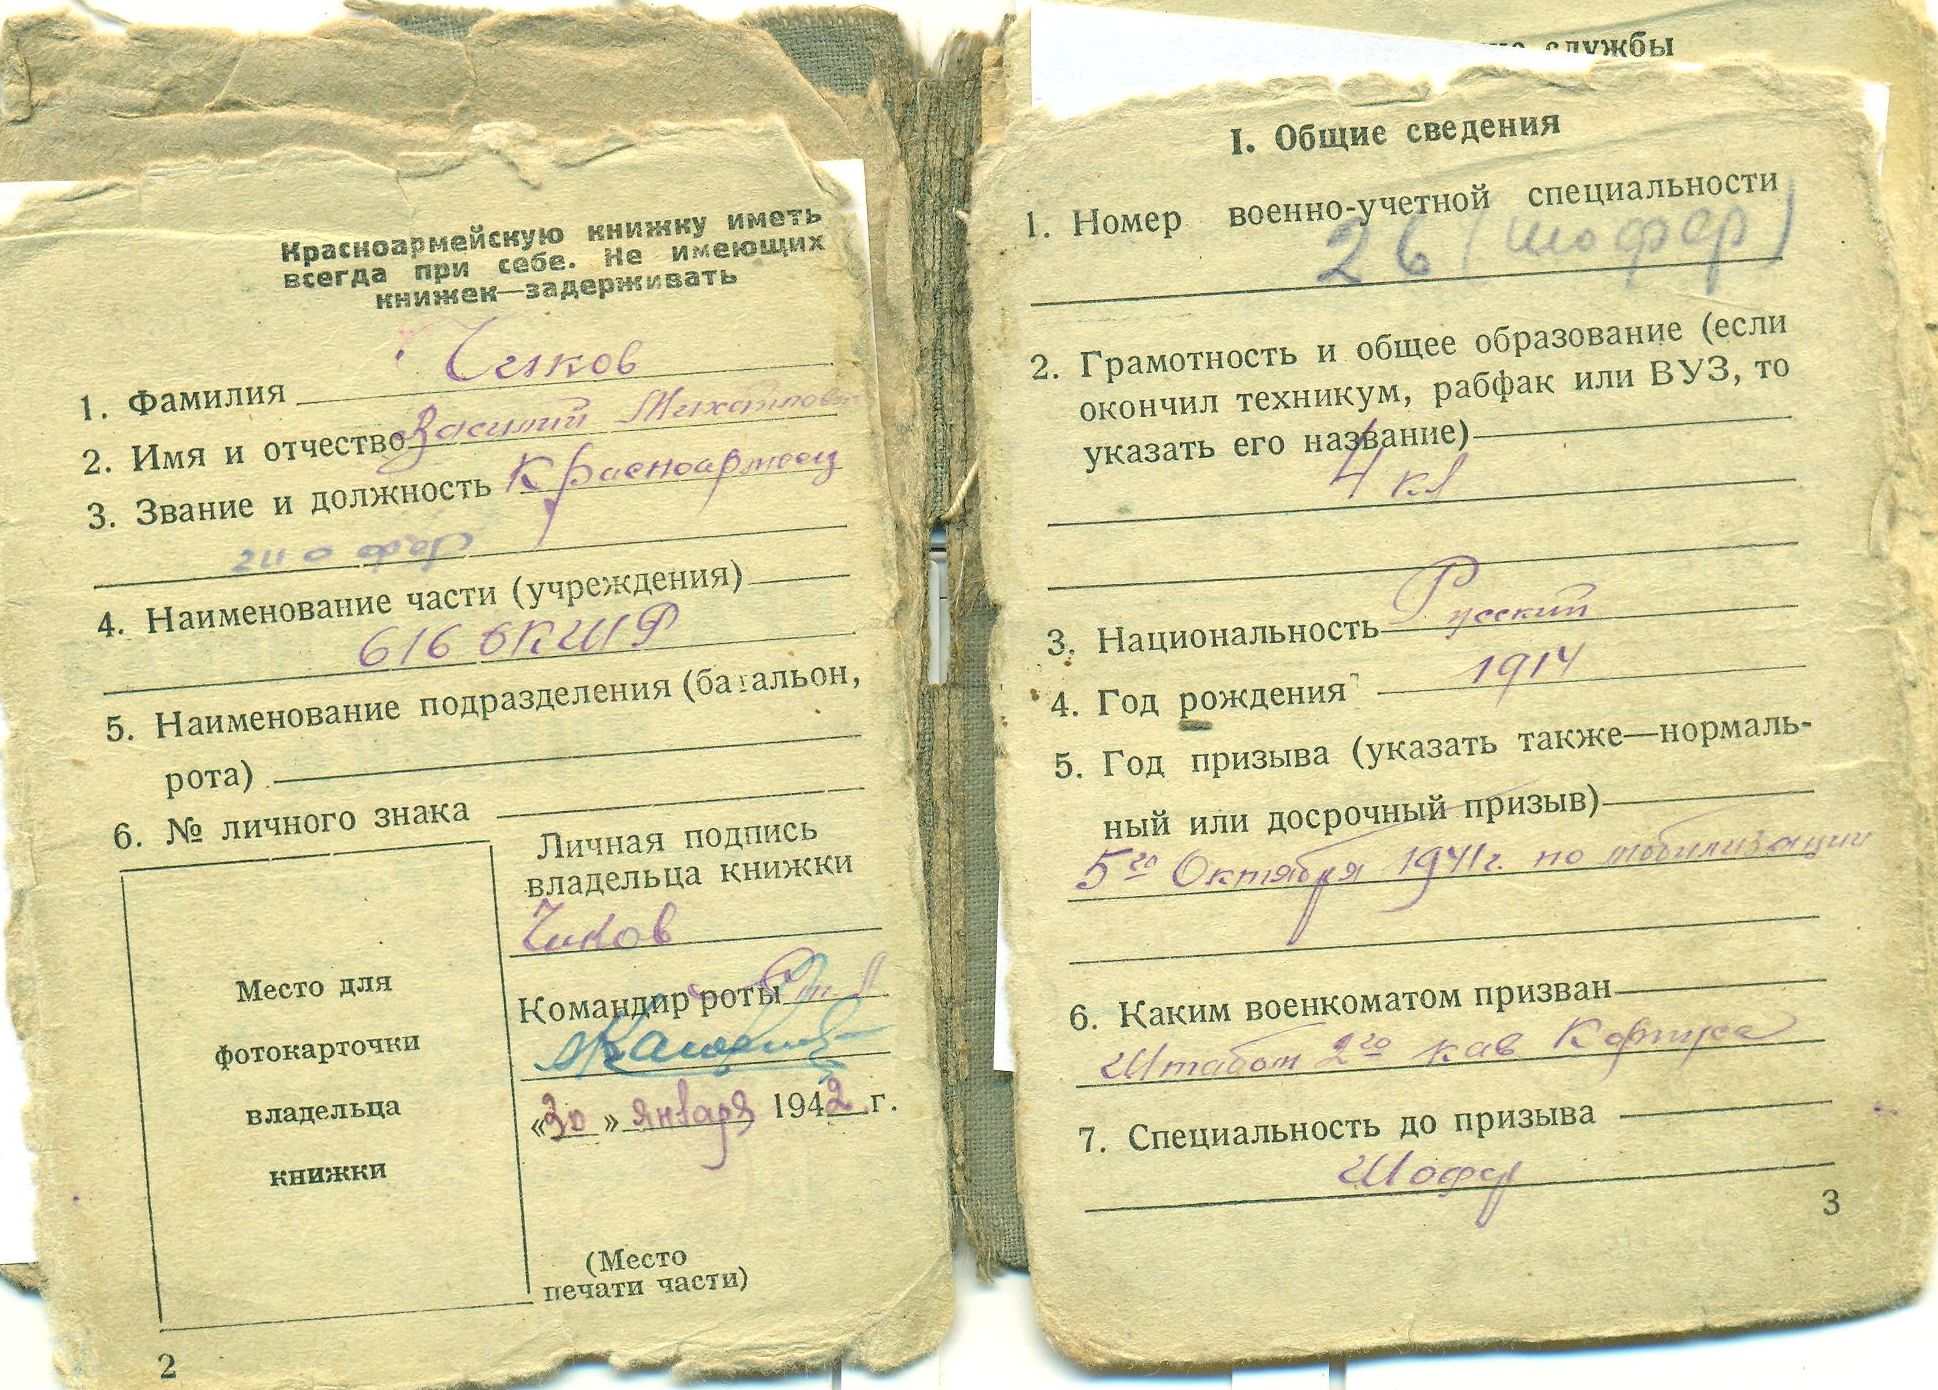 Красноармейскую книжку иметь
всегда при себе. Не имеющих
книжек—задерживать
1. Фамилия Чиков
2. Имя и отчество Василий Михайлович
3. Звание и должность Красноармеец
шофер
4. Наименование части (учреждения)
616
5. Наименование подразделения (батальон,
рота)
6. № личного знака
Место для
фотокарточки
владельца
книжки
Личная подпись
владельца книжки
Чиков
Командир роты
«30» января 1942 г.
(Место
печати части)
2
службы
I. Общие сведения
1. Номер военно-учетной специальности
26 (шофер)
2. Грамотность и общее образование (если
окончил техникум, рабфак или ВУЗ, то
указать его название)
4 кл
3. Национальность Русский
4. Год рождения 1914
5. Год призыва (указать также—нормаль-
ный или досрочный призыв)
5го Октября 1941г. по мобилизации
6. Каким военкоматом призван
Штабом 2го кав Корпуса
7. Специальность до призыва
Шофер
3